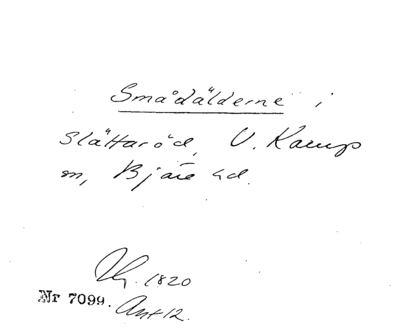 Smådälderne i
Slättaröd, V. Karup
sn, Bjäre hd.
Lhg. 1820
Nr 7099. Akt 12.